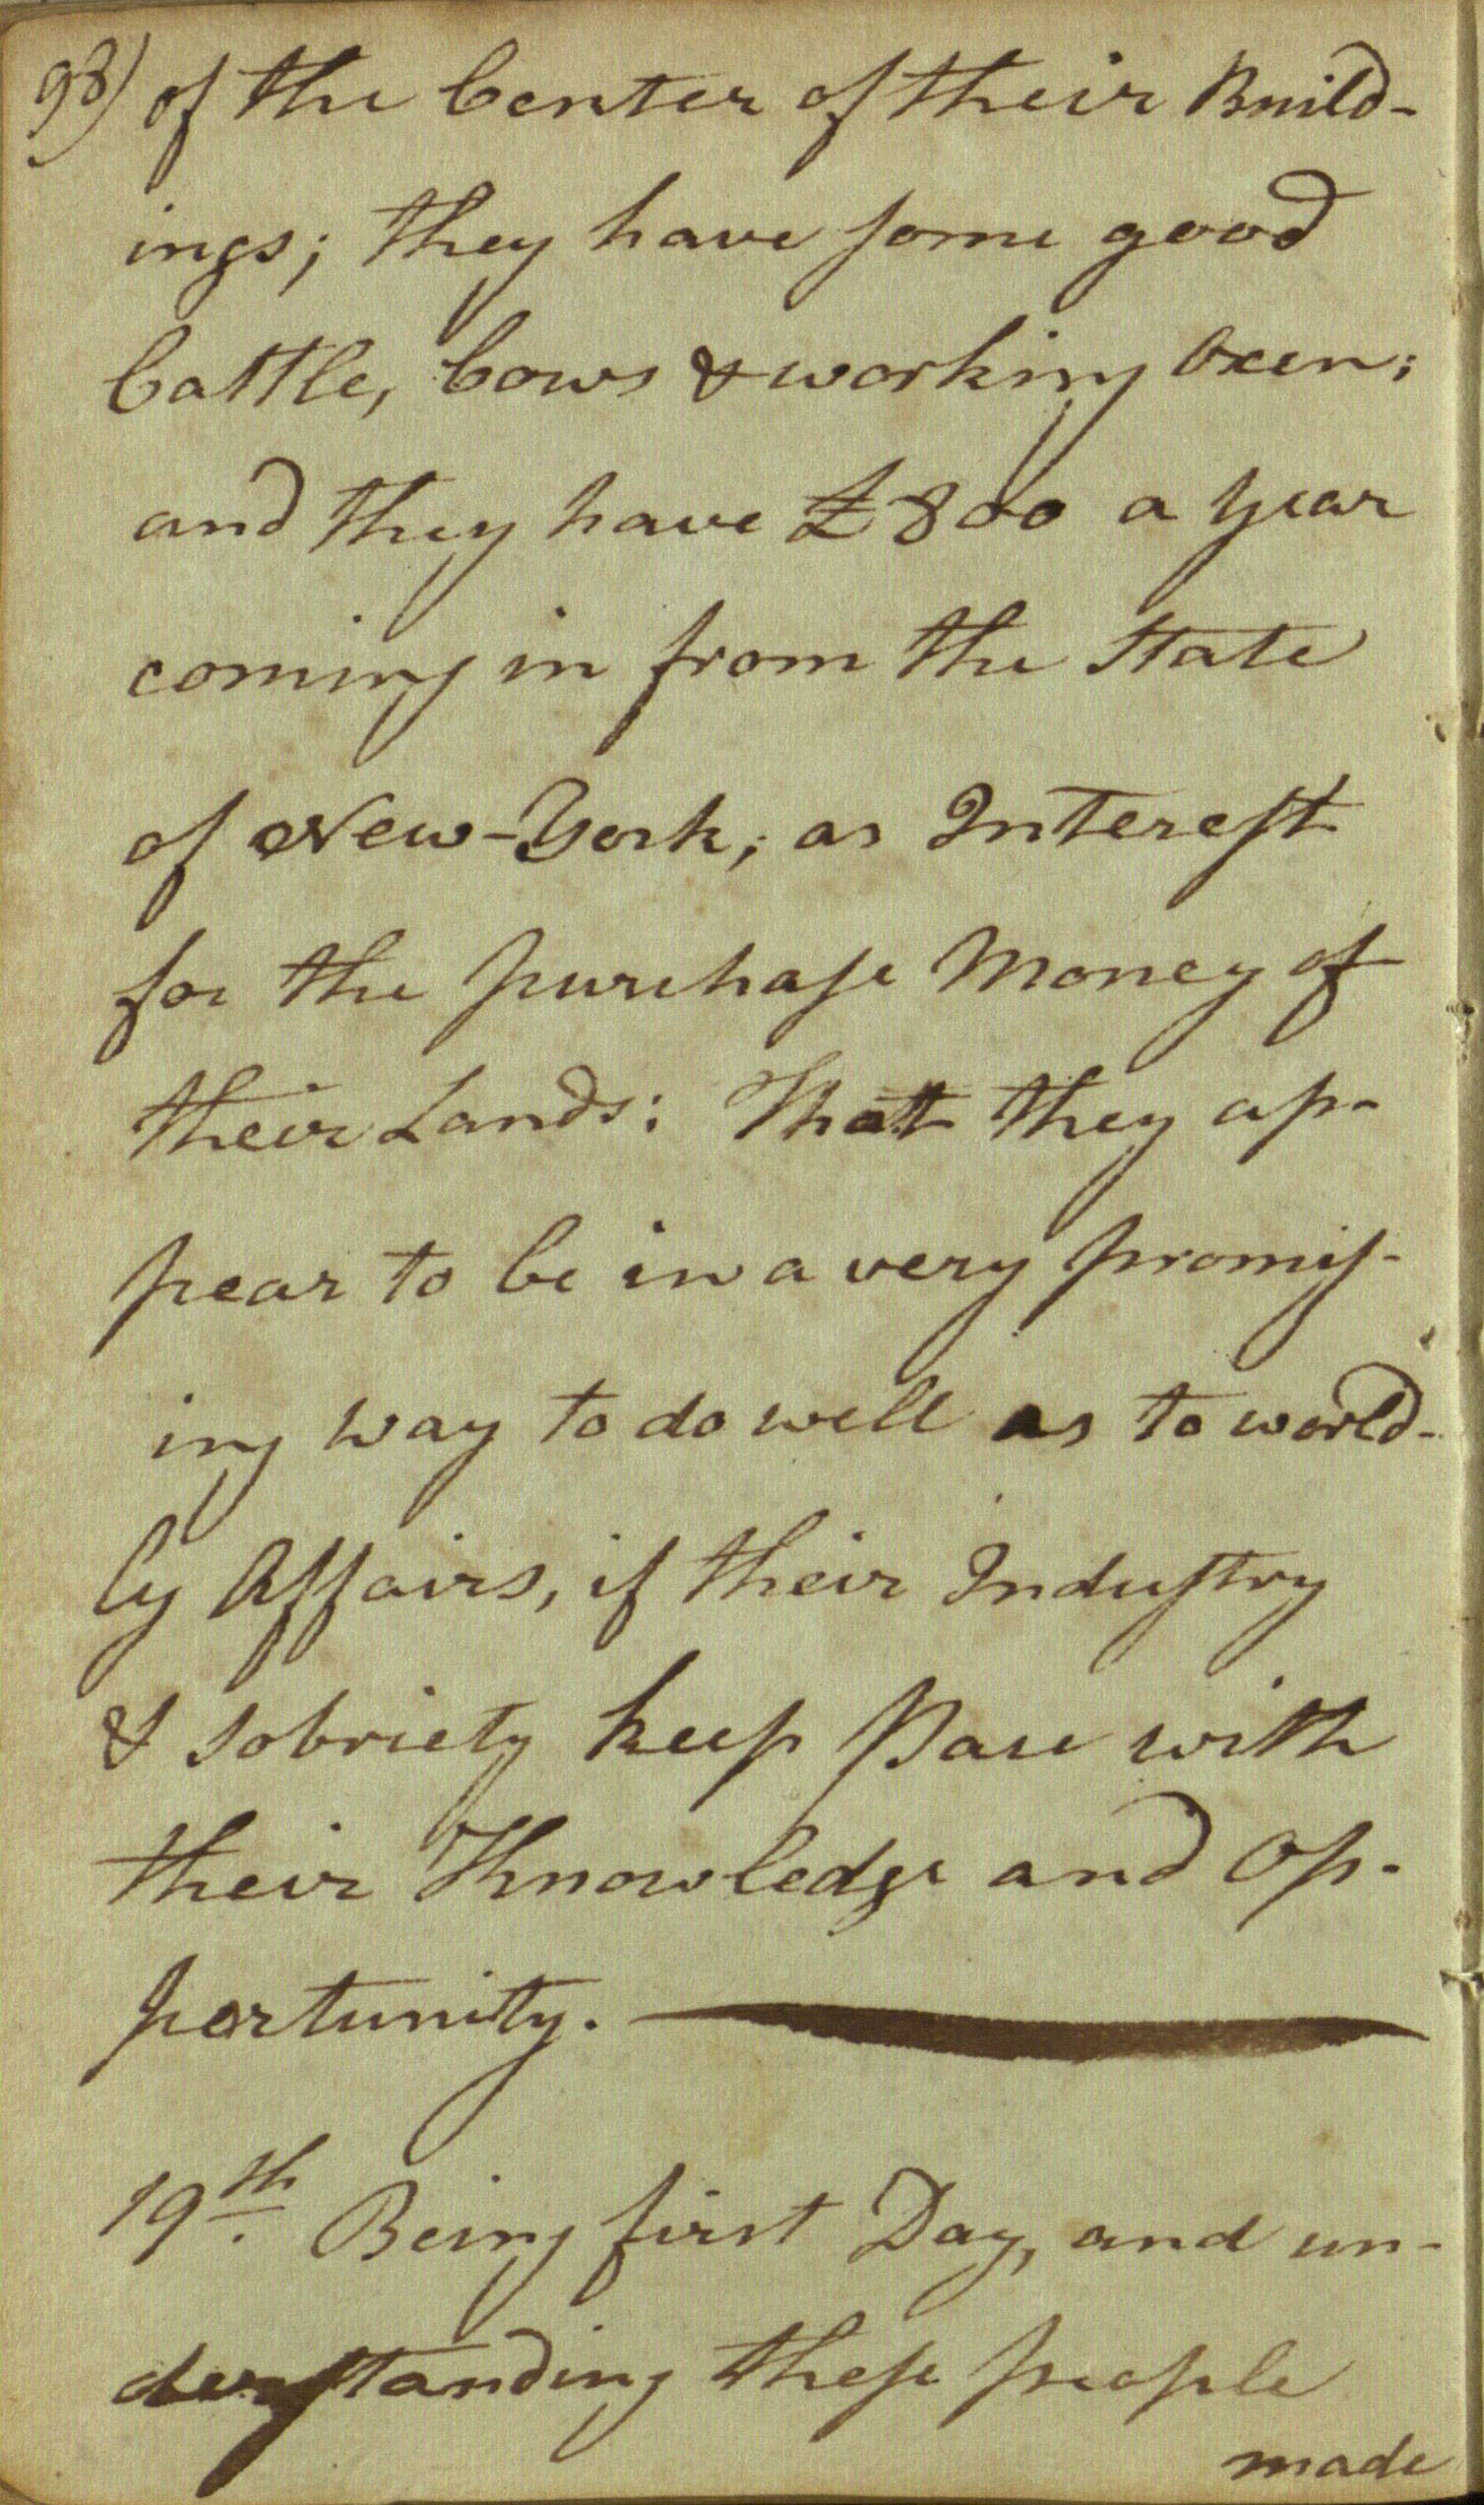 98) of the Center of their Build-
ings; they have some good
Cattle, Cows & working Oxen;
and they have £800 a year
coming in from the State
of New-York, as Interest
for the purchase Money of
their Lands: That they ap-
pear to be in a very promis-
ing way to do well as to world-
ly Affairs, if their Industry
& sobriety keep Pace with
their Knowledge and Op-
portunity.
19th. Being first Day, and un-
derstanding these people
made